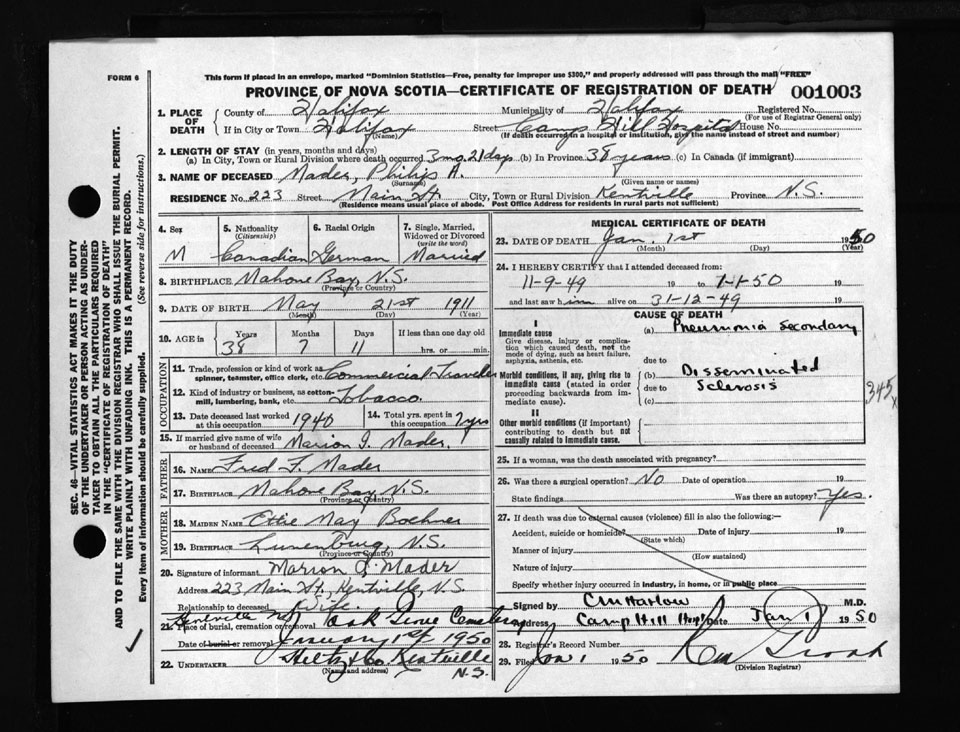 FORM 6
This form if placed in an envelope, marked "Dominion Statistics—Free, penalty for improper use $300," and properly addressed will pass through the mail "FREE"
PROVINCE OF NOVA SCOTIA—CERTIFICATE OF REGISTRATION OF DEATH 001003
1. PLACE OF DEATH County of Halifax Municipality of Halifax Registered No.
(For use of Registrar General only)
If in City or Town Halifax Street Camp Hill Hospital House No.
(Name) (If death occurred in a hospital or institution, give the name instead of street and number)
2. LENGTH OF STAY (in years, months and days)
(a) In City, Town or Rural Division where death occurred 3 mo. 21 days (b) In Province 38 years (c) In Canada (if immigrant)
3. NAME OF DECEASED Mader, Philip A.
(Surname) (Given name or names)
RESIDENCE No 223 Street Main St. City, Town or Rural Division Kentville Province N.S.
(Residence means usual place of abode. Post Office Address for residents in rural parts not sufficient)
4. Sex 5. Nationality 6. Racial Origin 7. Single, Married, Widowed or Divorced
(Citizenship) (write the word)
M Canadian German Married
8. BIRTHPLACE Mahone Bay, N.S.
(Province or Country)
9. DATE OF BIRTH May 21st 1911
(Month) (Day) (Year)
10. AGE in Years Months Days If less than one day old
38 7 11 hrs. or min.
OCCUPATION
11. Trade, profession or kind of work as spinner, teamster, office clerk, etc. Commercial Traveller
12. Kind of industry or business, as cotton-mill, lumbering, bank, etc. Tobacco
13. Date deceased last worked at this occupation 1940 14. Total yrs. spent in this occupation 7 yrs
15. If married give name of wife or husband of deceased Marion I. Mader
FATHER
16. NAME Fred F. Mader
17. BIRTHPLACE Mahone Bay, N.S.
(Province or Country)
MOTHER
18. MAIDEN NAME Ettie May Boehner
19. BIRTHPLACE Lunenburg, N.S.
(Province or Country)
20. Signature of informant Marion I. Mader
Address 223 Main St, Kentville, N.S.
Relationship to deceased Wife.
21. Place of burial, cremation or removal Kentville NS Oak Grove Cemetery
Date of burial or removal January 1st 1950
22. UNDERTAKER Hiltz & Co. Kentville N.S.
(Name and address)
MEDICAL CERTIFICATE OF DEATH
23. DATE OF DEATH Jan. 1st 1950
(Month) (Day) (Year)
24. I HEREBY CERTIFY that I attended deceased from:
11-9-49 19 to 1-1-50 19
and last saw him alive on 31-12-49 19
CAUSE OF DEATH
I
Immediate cause (a) Pneumonia Secondary
Give disease, injury or complication which caused death, not the mode of dying, such as heart failure, asphyxia, asthenia, etc.
due to
Morbid conditions, if any, giving rise to immediate cause (stated in order proceeding backwards from immediate cause).
(b) Disseminated
due to Sclerosis
(c)
345x
II
Other morbid conditions (if important) contributing to death but not causally related to immediate cause.
25. If a woman, was the death associated with pregnancy?
26. Was there a surgical operation? No Date of operation 19
State findings Was there an autopsy? Yes.
27. If death was due to external causes (violence) fill in also the following:—
Accident, suicide or homicide? Date of injury 19
(State which)
Manner of injury
(How sustained)
Nature of injury
Specify whether injury occurred in industry, in home, or in public place
Signed by C M Harlow M.D.
Address Camp Hill Hosp Date Jan 1 1950
28. Registrar's Record Number
29. Filed Jan 1 1950
(Division Registrar)
SEC. 46—VITAL STATISTICS ACT MAKES IT THE DUTY
OF THE UNDERTAKER OR PERSON ACTING AS UNDER-
TAKER TO OBTAIN ALL THE PARTICULARS REQUIRED
IN THE "CERTIFICATE OF REGISTRATION OF DEATH"
AND TO FILE THE SAME WITH THE DIVISION REGISTRAR WHO SHALL ISSUE THE BURIAL PERMIT.
WRITE PLAINLY WITH UNFADING INK. THIS IS A PERMANENT RECORD.
Every item of information should be carefully supplied. (See reverse side for instructions.)